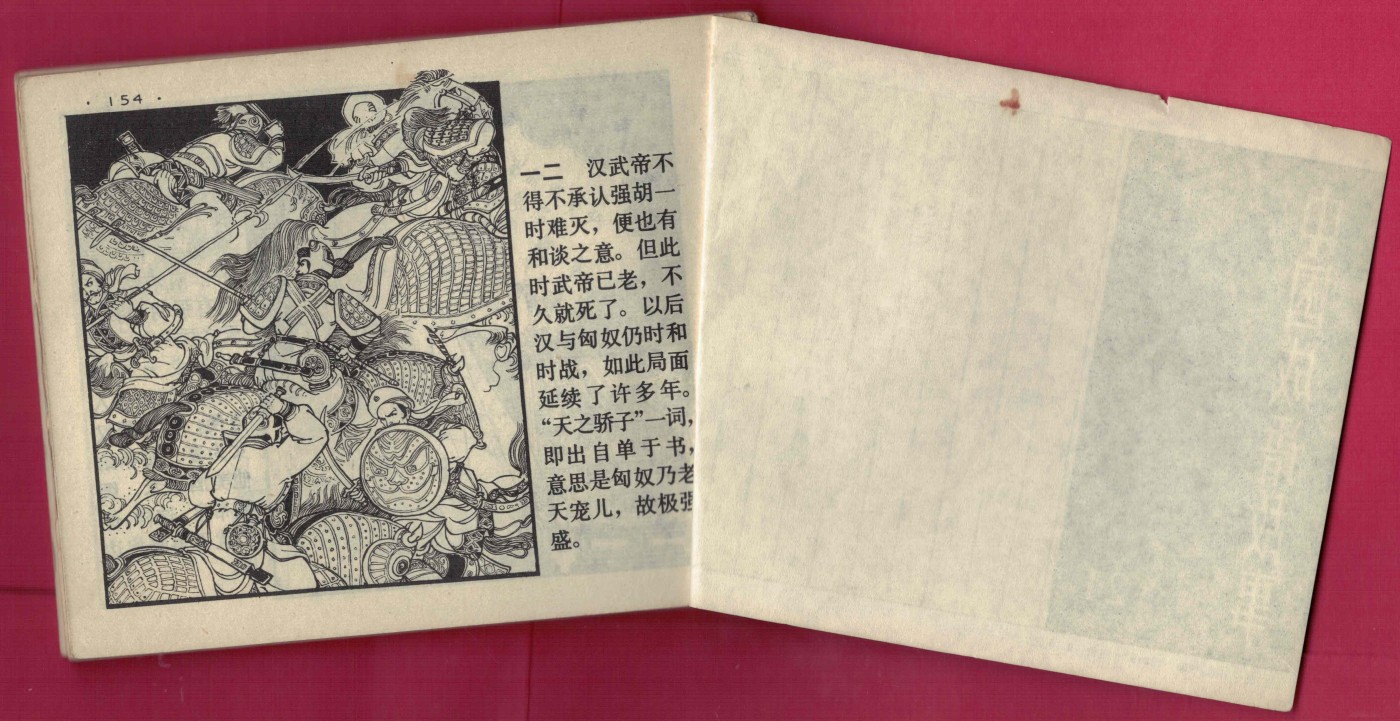 · 154 ·
一二 汉武帝不
得不承认强胡一
时难灭，便也有
和谈之意。但此
时武帝已老，不
久就死了。以后
汉与匈奴仍时和
时战，如此局面
延续了许多年。
“天之骄子”一词，
即出自单于书，
意思是匈奴乃老
天宠儿，故极强
盛。